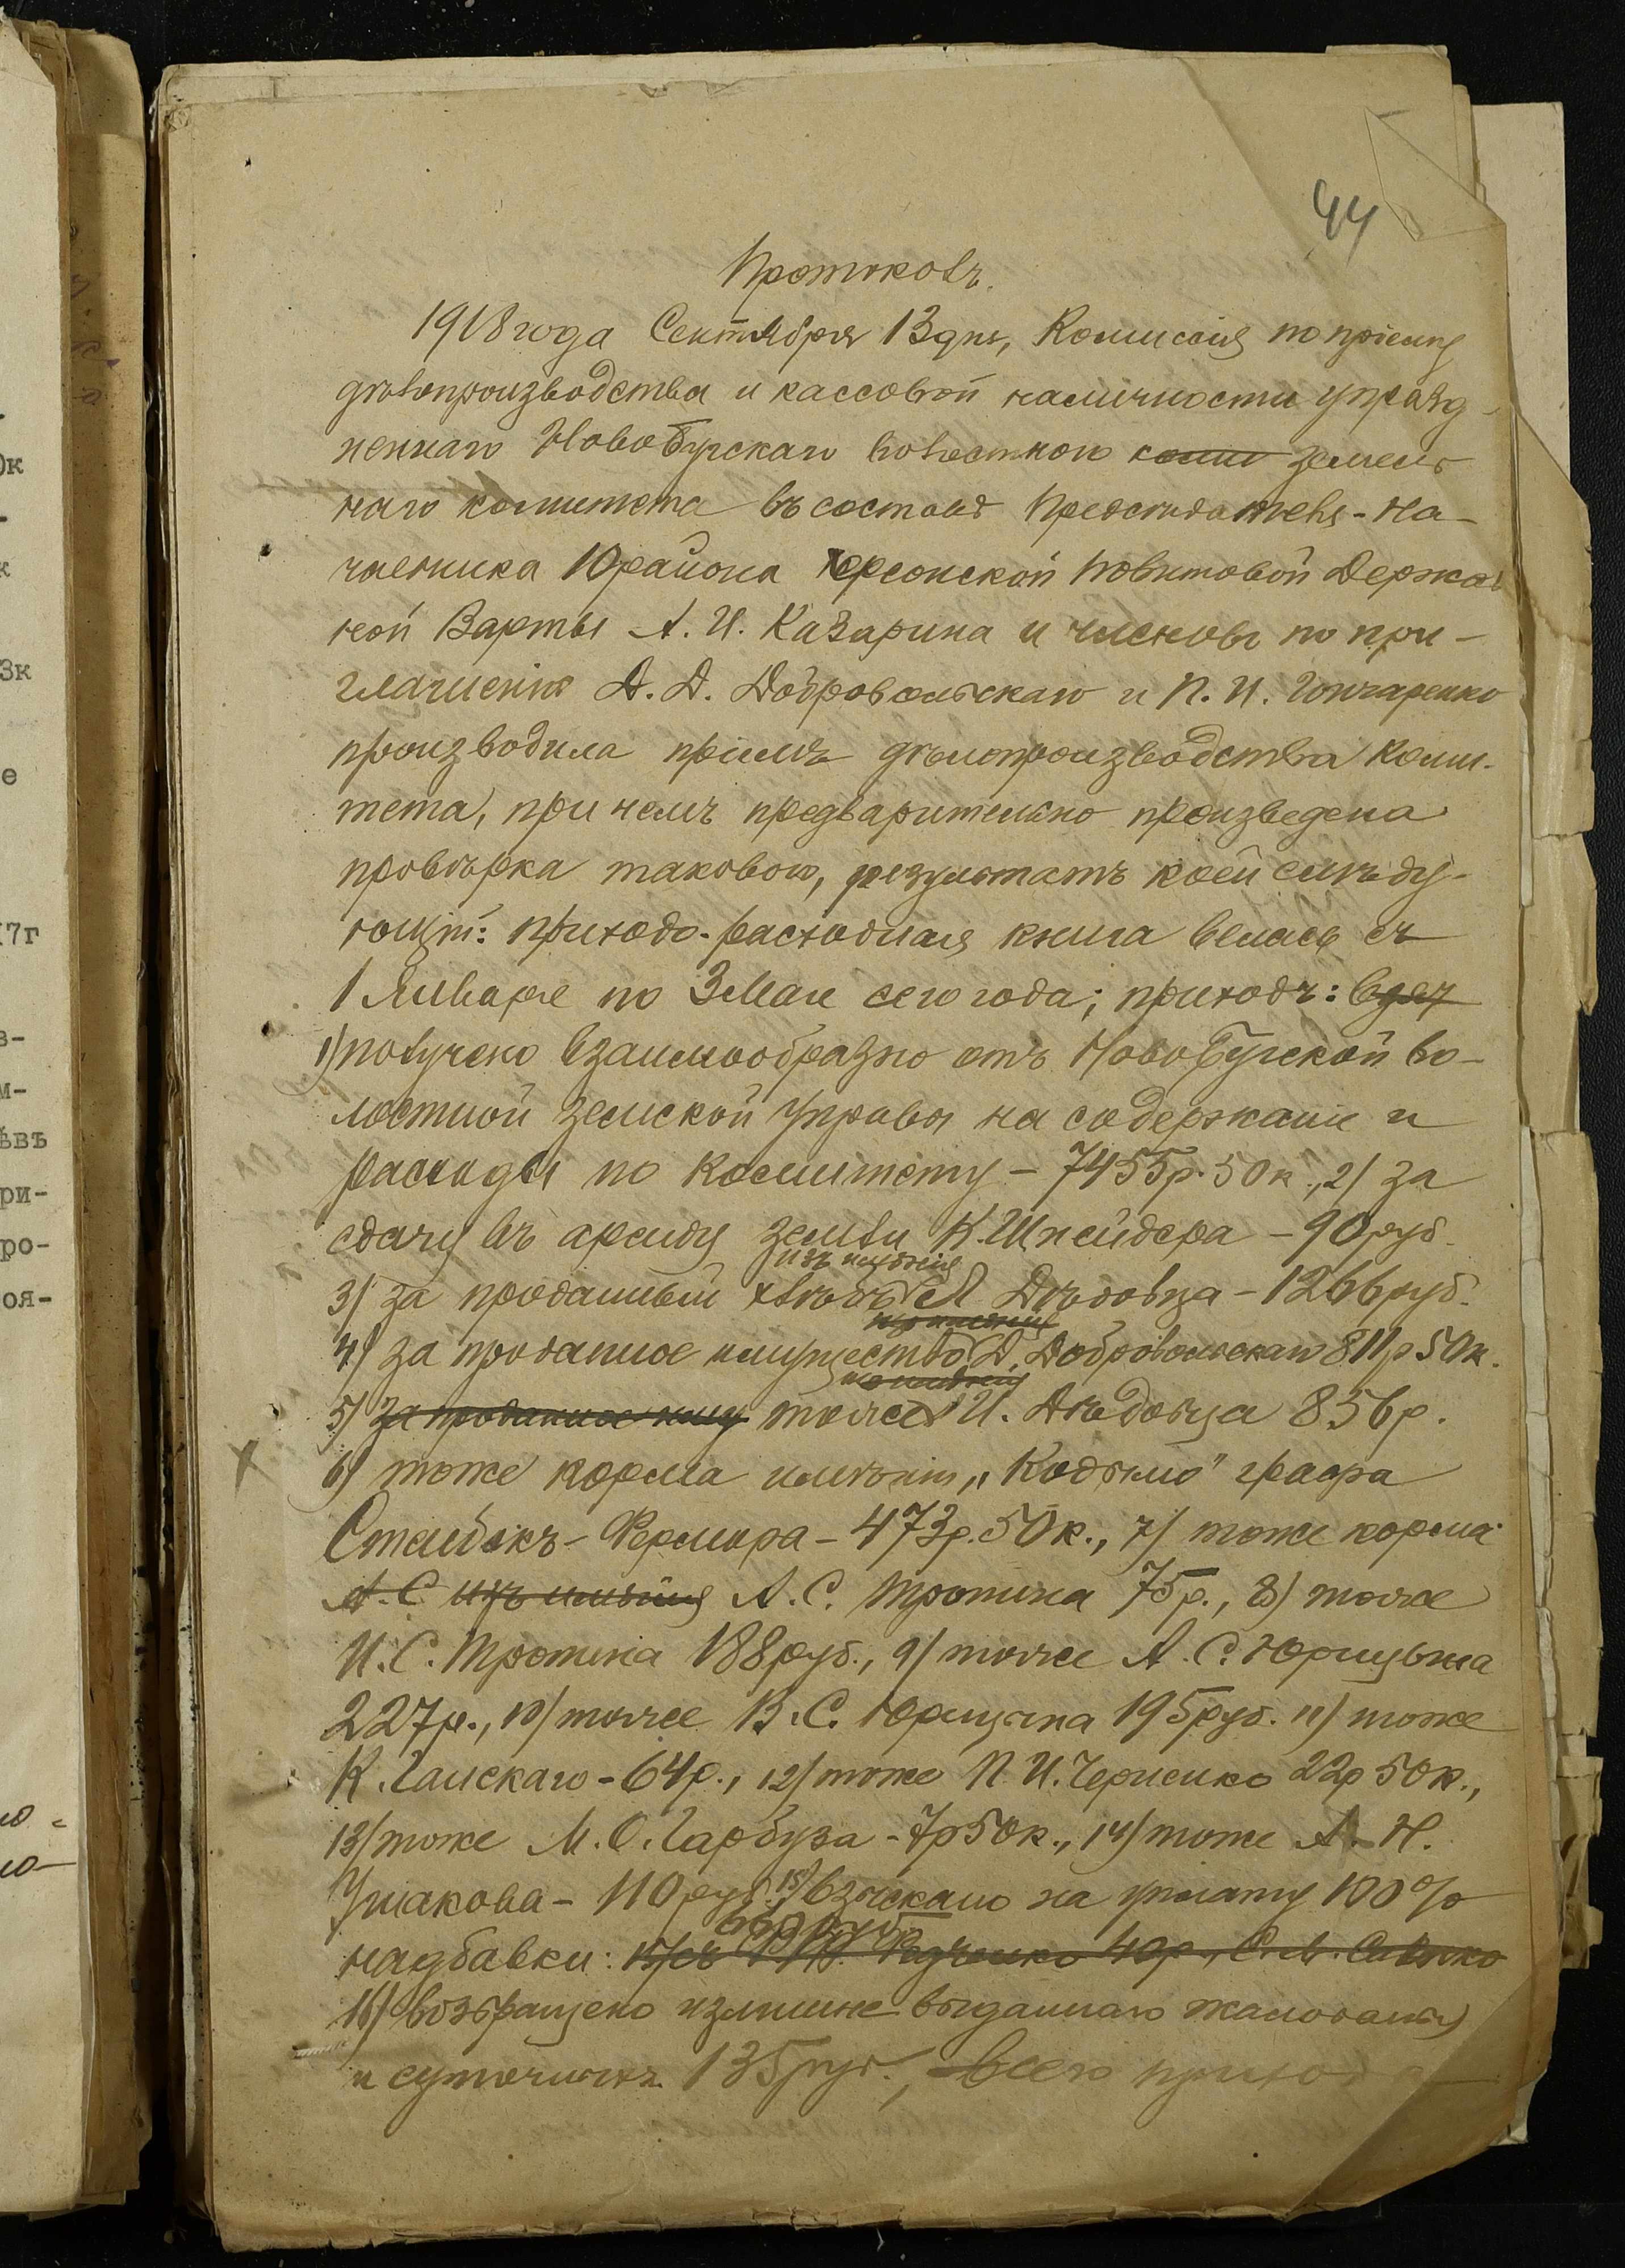 44
Протоколъ.
1918 года Сентября 13 дня, Комиссія по пріему
дѣлопроизводства и кассовой наличности упразд-
неннаго НовоБугскаго волостного коми земель-
наго комитета въ составѣ Предсѣдателя-На-
чальника 10 района Херсонской Повитовой Держав-
ной Варты А. И. Казарина и членовъ по при-
глашенію А. Д. Добровольскаго и П. И. Гончаренко
производила пріемъ дѣлопроизводства Коми-
тета, при чемъ предварительно произведена
провѣрка таковою, результатъ коей слѣду-
ющій: приходо-расходная книга велась съ
1 Января по 3 Мая сего года; приходъ:
1) получено взаимообразно отъ НовоБугской во-
лостной земской Управы на содержаніе и
расходы по Комитету - 7455р. 50к., 2) за
сдачу въ аренду земли К. Шнейдера - 90 руб.
изъ имѣнія
3) за проданный хлѣбъ Дѣдовца - 1266 руб.
4) за проданное имущество Д. Добровольскаго 811р 50к.
5) за проданное иму тоже И. Дѣдовца 856р.
6) тоже корма имѣнія „Кодымо" графа
Стенбокъ-Фермора - 473р. 50к., 7) тоже корма
А. С изъ имѣнія А. С. Тропина 75р., 8) тоже
И. С. Тропина 188 руб., 9) тоже А. С. Юрицына
227р., 10) тоже В. С. Юрицына 195 руб. 11) тоже
К. Гамскаго - 64р., 12) тоже П. И. Черненко 22р 50к.,
13) тоже М. С. Гарбуза - 7р 50к., 14) тоже А. Н.
Ушакова - 110 руб. 15) взыскано на уплату 100%
надбавки: 40р., С. М.
16) возвращено излишне выданнаго жалованья
и суточныхъ 135 руб., всего приход